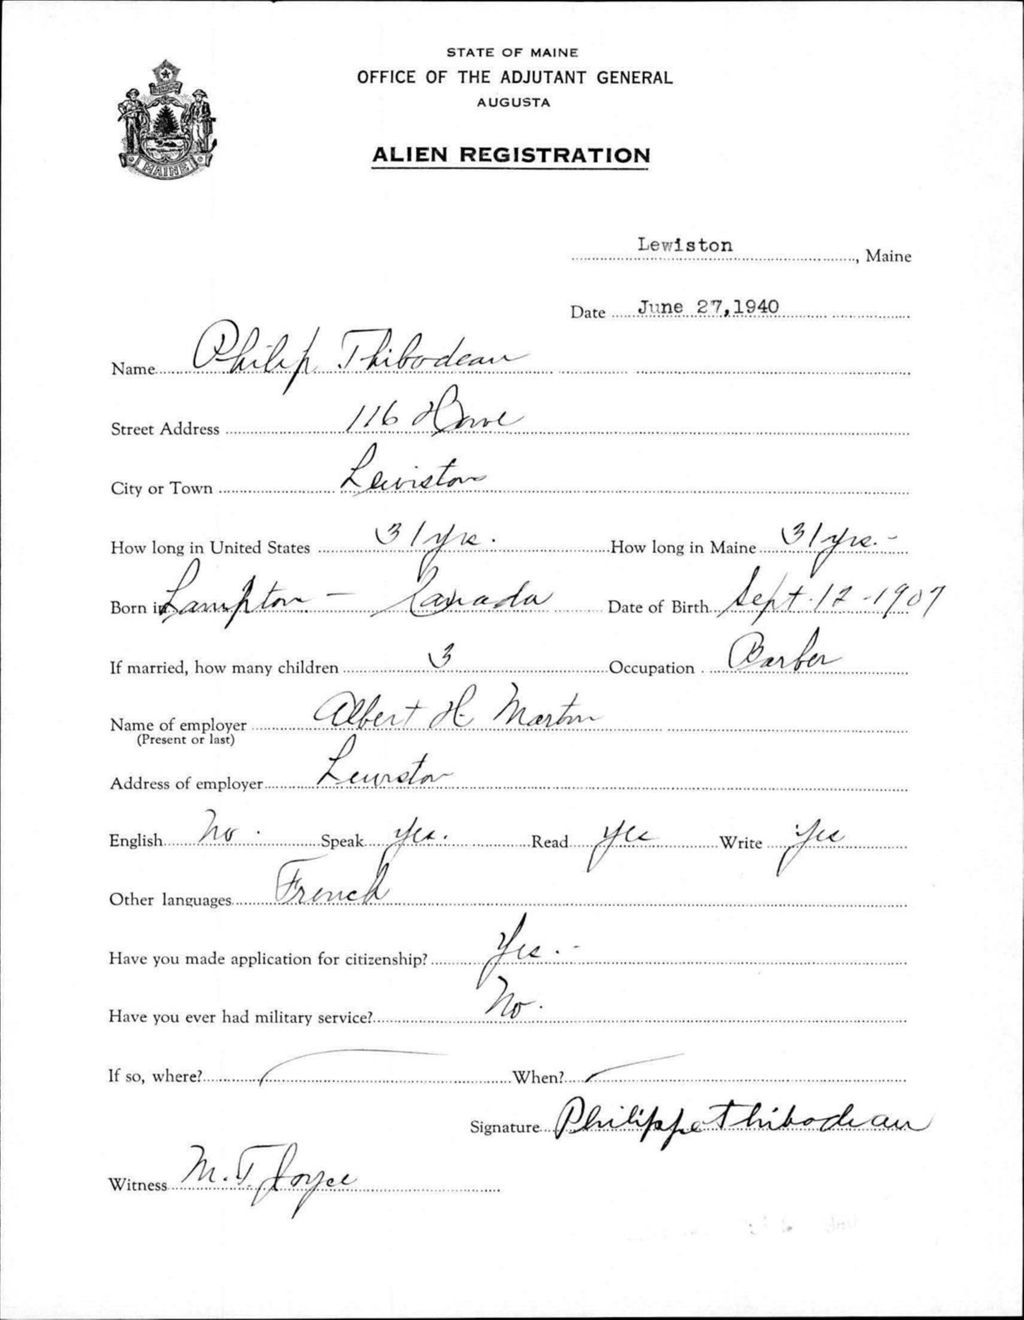 STATE OF MAINE
OFFICE OF THE ADJUTANT GENERAL
AUGUSTA
ALIEN REGISTRATION
MAINE
Lewiston, Maine
Date June 27, 1940
Name Philip Thibodeau
Street Address 116 Howe
City or Town Lewiston
How long in United States 31 yrs. How long in Maine 31 yrs. -
Born in Lampton - Canada Date of Birth Sept. 12 - 1907
If married, how many children 3 Occupation Barber
Name of employer Albert H. Martin
(Present or last)
Address of employer Lewiston
English No. Speak Yes. Read Yes Write Yes
Other languages French
Have you made application for citizenship? Yes. -
Have you ever had military service? No.
If so, where? When?
Signature Philippe Thibodeau
Witness M. T. Joyce